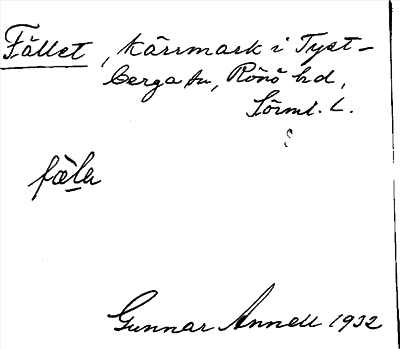 Fället, kärrmark i Tyst-
berga sn, Rönö hd,
Sörml. l.
fälu
Gunnar Annell 1932